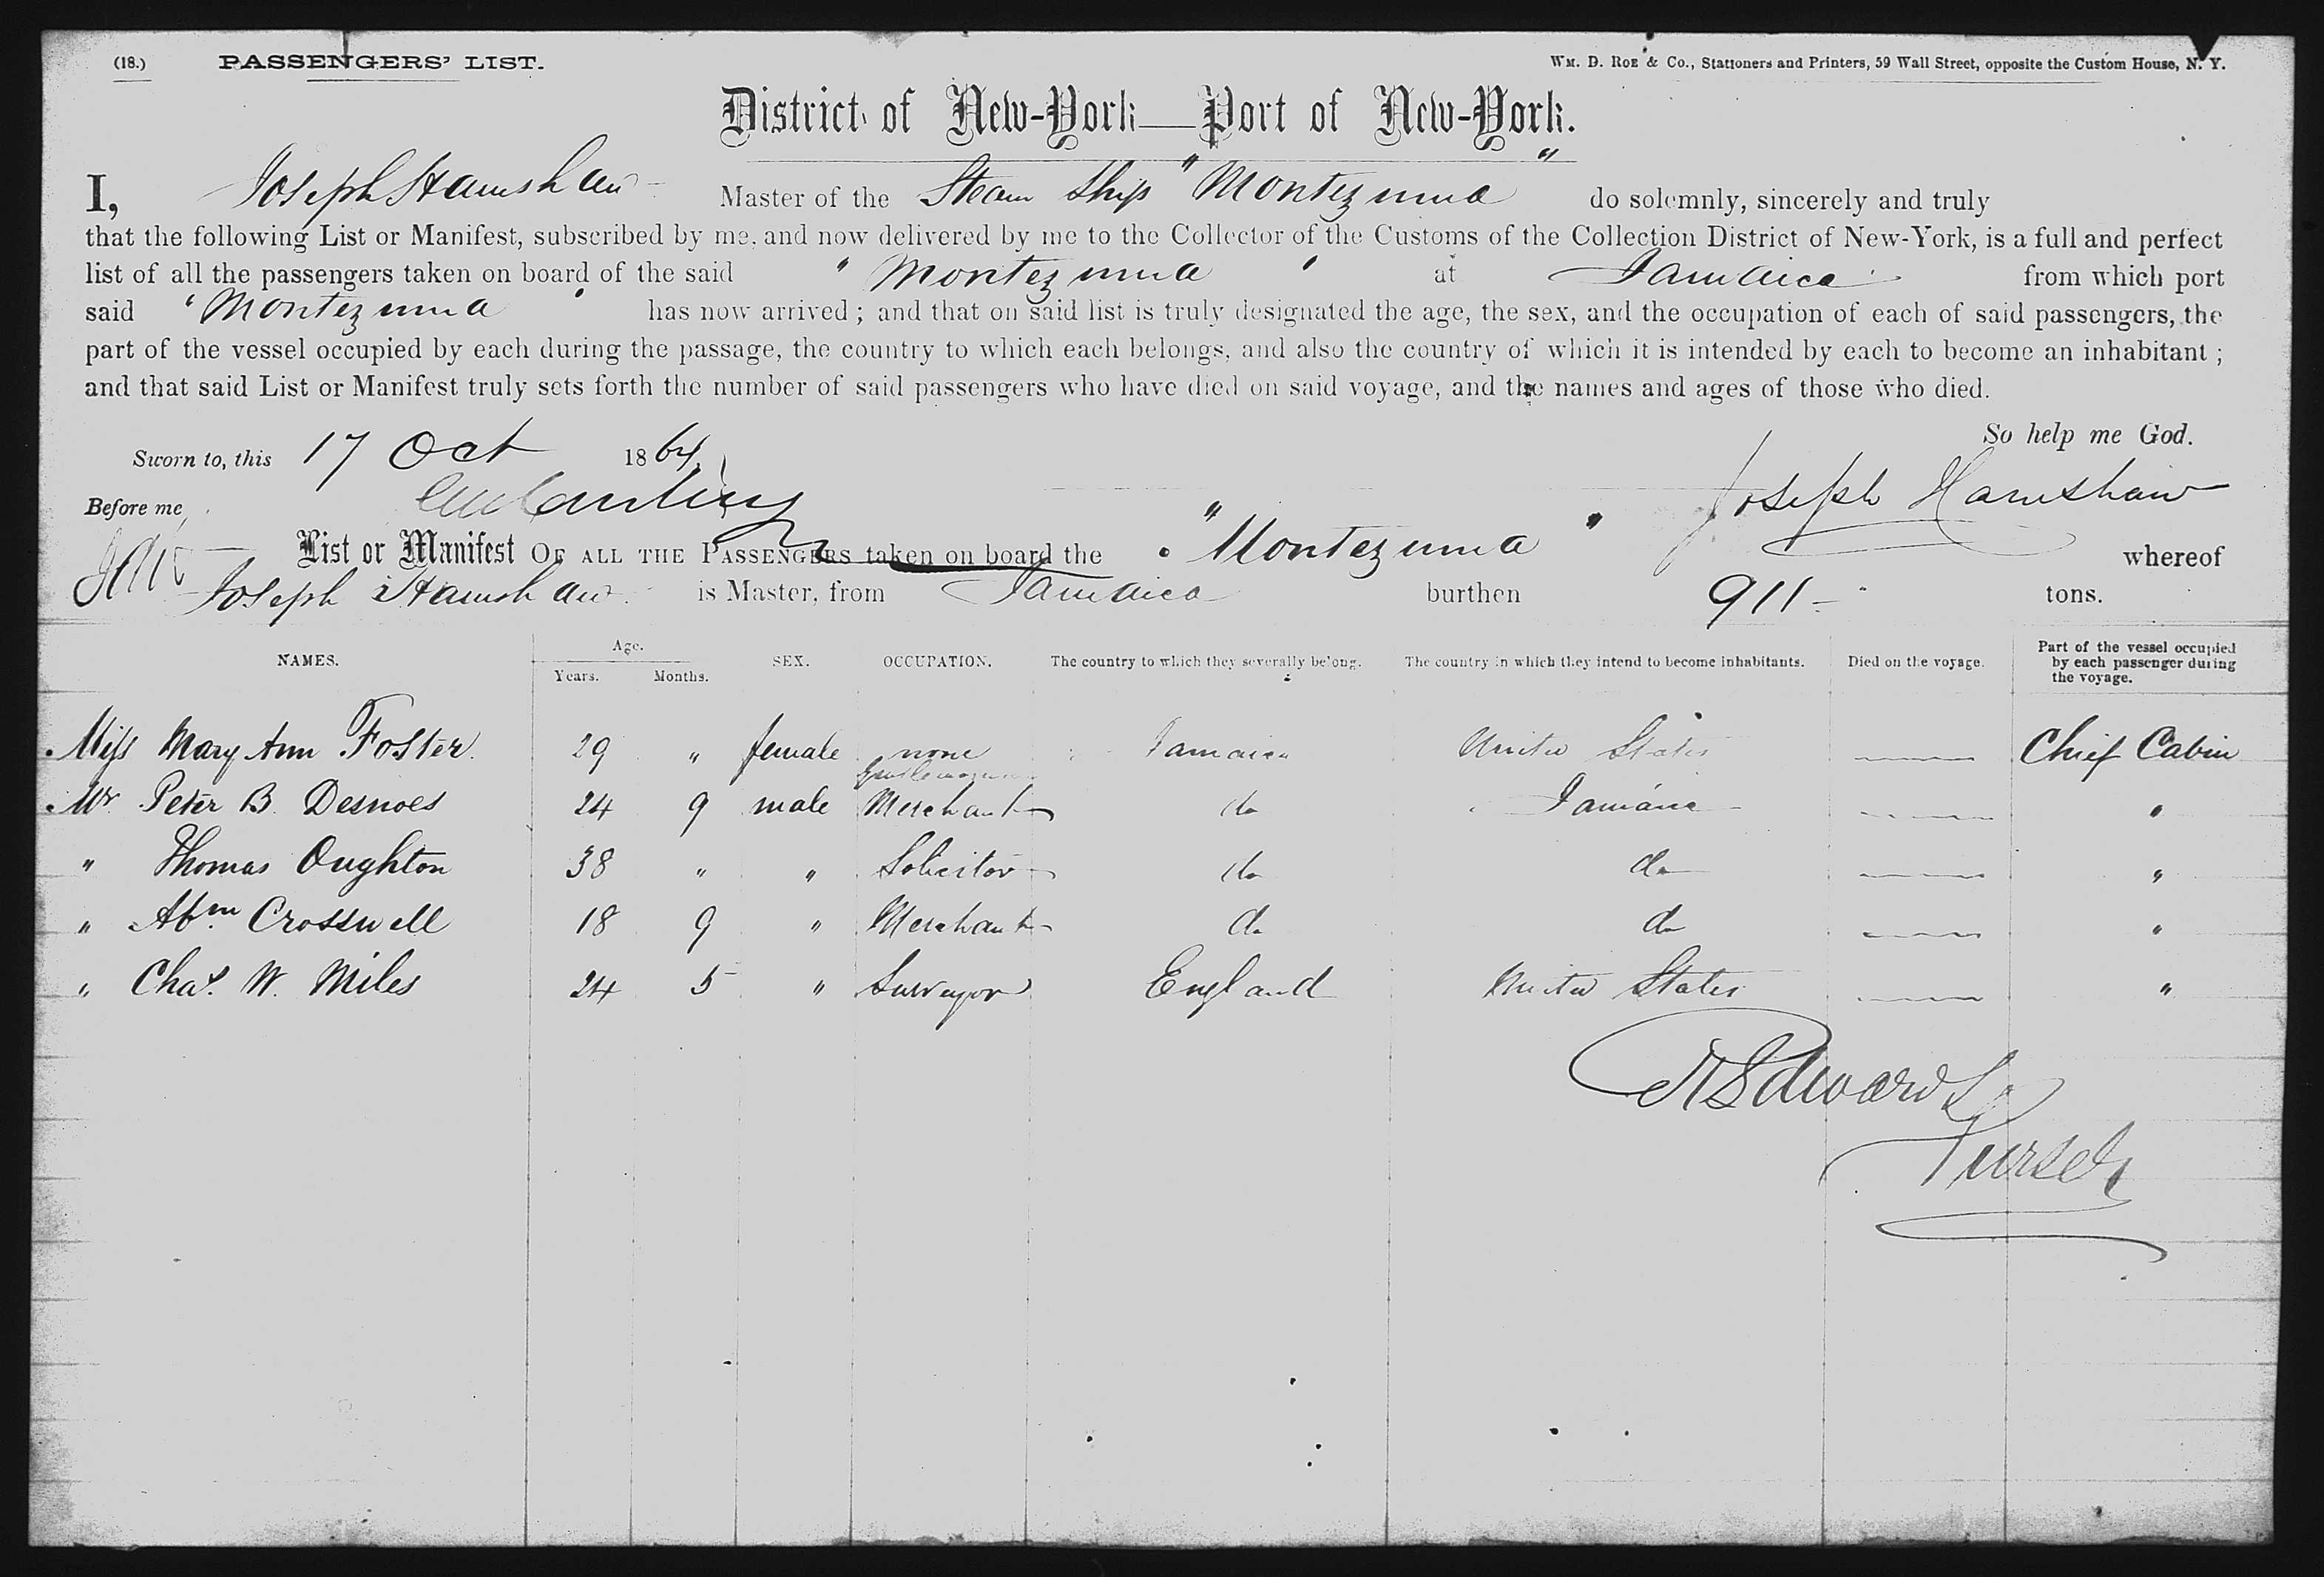 (18.) PASSENGERS' LIST. Wm. D. Roe & Co., Stationers and Printers, 59 Wall Street, opposite the Custom House, N. Y.
District of New-York—Port of New-York.
I, Joseph Hamshaw Master of the Steam Ship "Montezuma" do solemnly, sincerely and truly
that the following List or Manifest, subscribed by me, and now delivered by me to the Collector of the Customs of the Collection District of New-York, is a full and perfect
list of all the passengers taken on board of the said "Montezuma" at Jamaica from which port
said "Montezuma" has now arrived; and that on said list is truly designated the age, the sex, and the occupation of each of said passengers, the
part of the vessel occupied by each during the passage, the country to which each belongs, and also the country of which it is intended by each to become an inhabitant;
and that said List or Manifest truly sets forth the number of said passengers who have died on said voyage, and the names and ages of those who died.
So help me God.
Sworn to, this 17 Oct 1864
Before me Joseph Hamshaw
List or Manifest OF ALL THE PASSENGERS taken on board the "Montezuma" whereof
Joseph Hamshaw is Master, from Jamaica burthen 911 tons.
NAMES. Age. Years. Months. SEX. OCCUPATION. The country to which they severally belong. The country in which they intend to become inhabitants. Died on the voyage. Part of the vessel occupied by each passenger during the voyage.
Miss Mary Ann Foster 29 " female none Jamaica United States — Chief Cabin
Mr Peter B. Desnoes 24 9 male Merchant do Jamaica — "
" Thomas Oughton 38 " " Solicitor do do — "
" Abm Crosswell 18 9 " Merchant do do — "
" Chas. W. Miles 24 5 " Surveyor England United States — "
Edwards
Purser